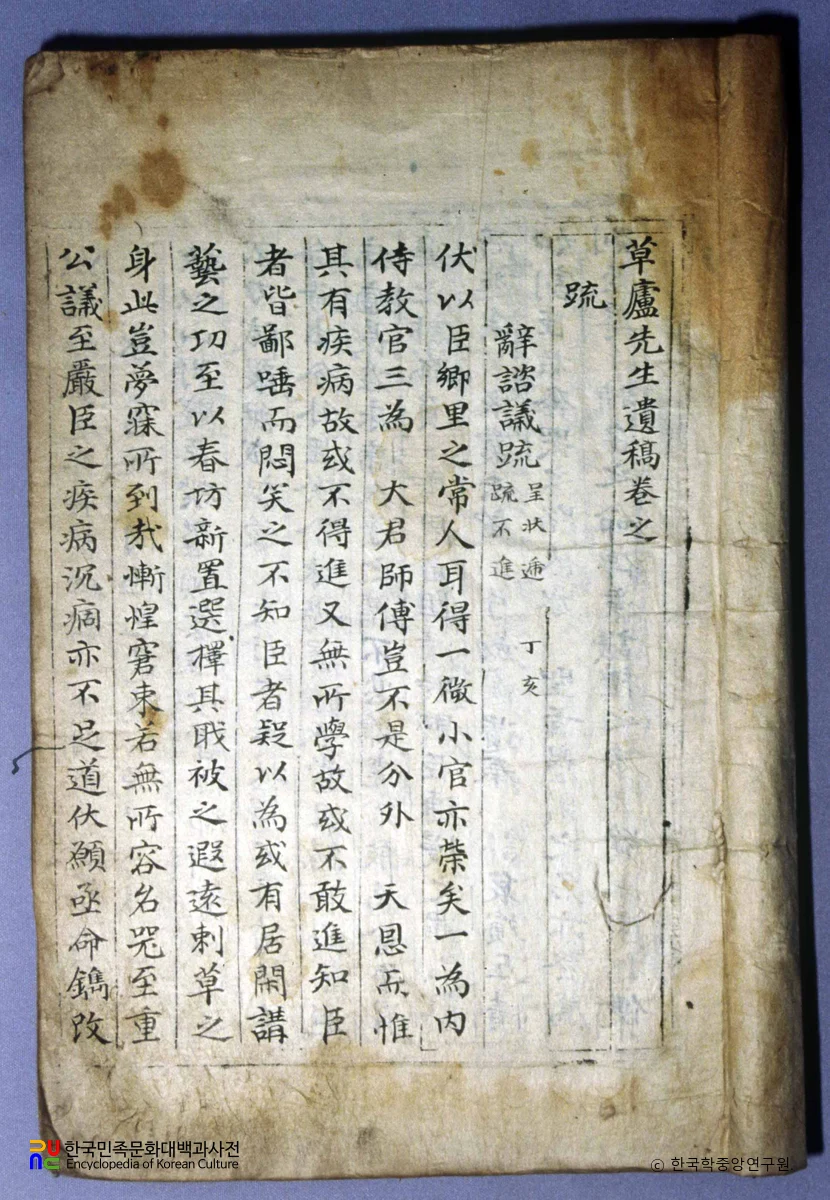 草廬先生遺稿卷之
疏
辭諮議疏 呈狀遞 丁亥
疏不進
伏以臣鄉里之常人耳得一微小官亦榮矣一為內
侍教官三為 大君師傅豈不是分外 天恩 惟
其有疾病故或不得進又無所學故或不敢進知臣
者皆鄙唾而悶笑之不知臣者疑以為或有居閑講
藝之功至以春坊新置選擇其職被之遐遠刺草之
身此豈夢寐所到哉慚惶窘束若無所容名器至重
公議至嚴臣之疾病沉痼亦不足道伏願亟命鐫改
한국민족문화대백과사전
Encyclopedia of Korean Culture
© 한국학중앙연구원